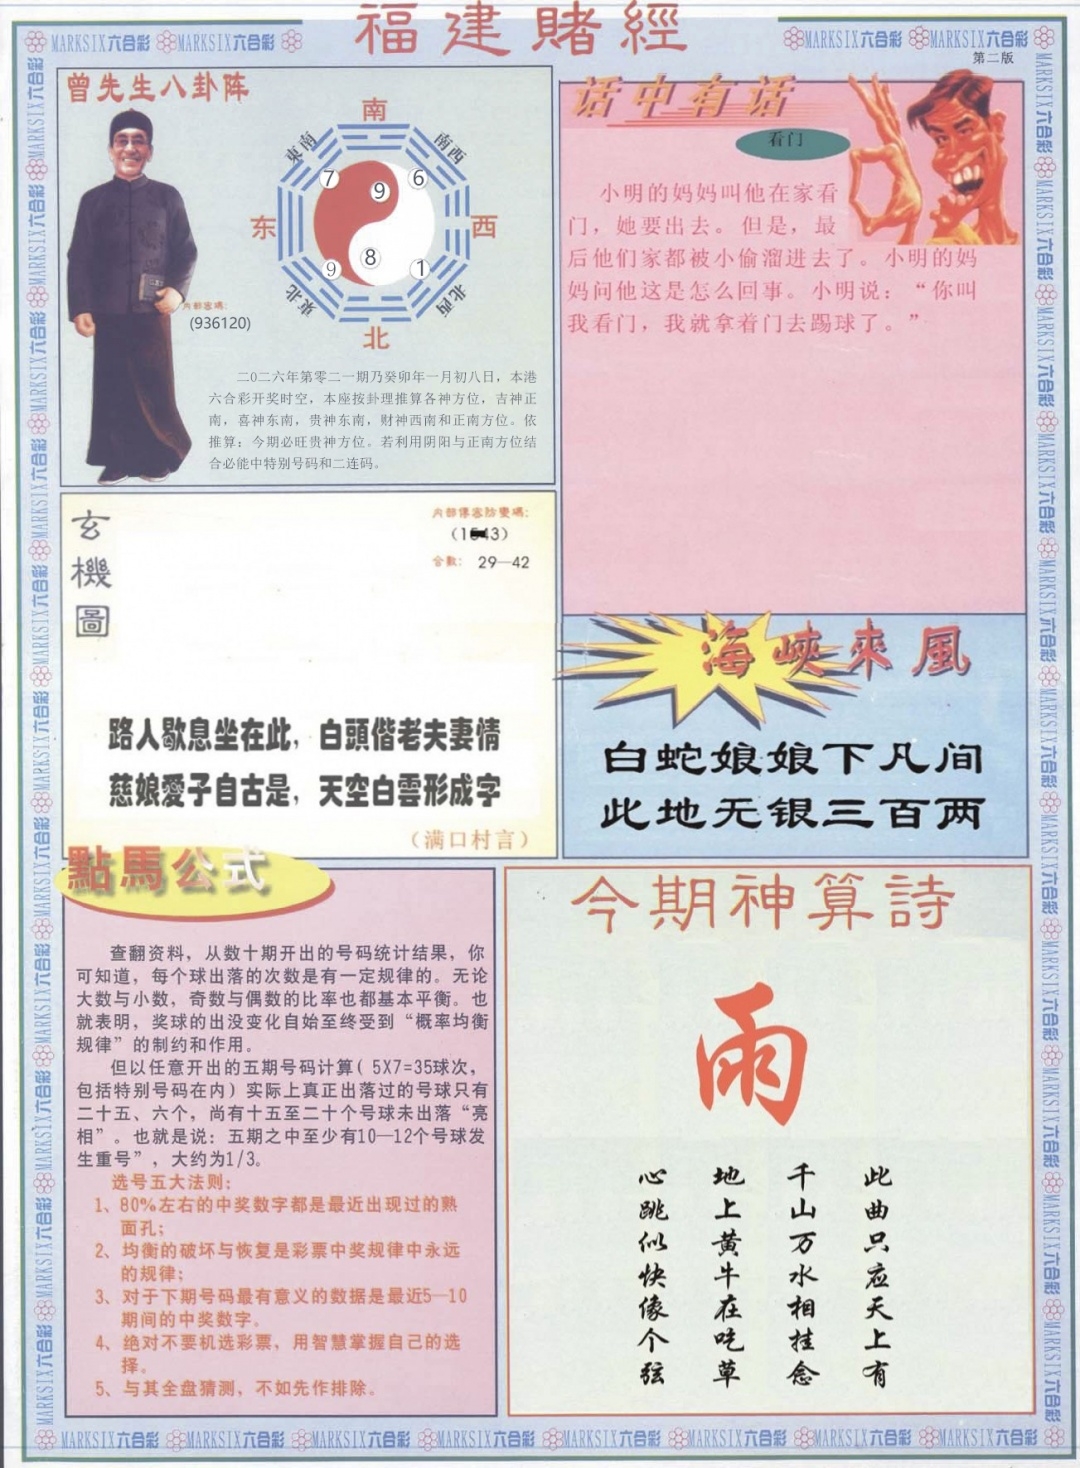 福建賭經
MARKSIX六合彩 MARKSIX六合彩
MARKSIX六合彩 MARKSIX六合彩
第二版
曾先生八卦阵
南
東南
南西
7
9
6
东
西
8
9
1
東北
北西
北
内部密碼:
(936120)
二〇二六年第零二一期乃癸卯年一月初八日，本港
六合彩开奖时空，本座按卦理推算各神方位，吉神正
南，喜神东南，贵神东南，财神西南和正南方位。依
推算：今期必旺贵神方位。若利用阴阳与正南方位结
合必能中特别号码和二连码。
话中有话
看门
小明的妈妈叫他在家看
门，她要出去。但是，最
后他们家都被小偷溜进去了。小明的妈
妈问他这是怎么回事。小明说：“你叫
我看门，我就拿着门去踢球了。”
玄機圖
内部傳密防變碼:
合數: 29—42
路人歇息坐在此，白頭偕老夫妻情
慈娘愛子自古是，天空白雲形成字
（满口村言）
海峽來風
白蛇娘娘下凡间
此地无银三百两
點馬公式
查翻资料，从数十期开出的号码统计结果，你
可知道，每个球出落的次数是有一定规律的。无论
大数与小数，奇数与偶数的比率也都基本平衡。也
就表明，奖球的出没变化自始至终受到“概率均衡
规律”的制约和作用。
但以任意开出的五期号码计算( 5X7=35球次，
包括特别号码在内）实际上真正出落过的号球只有
二十五、六个，尚有十五至二十个号球未出落“亮
相”。也就是说：五期之中至少有10—12个号球发
生重号”，大约为1/3。
选号五大法则：
1、80%左右的中奖数字都是最近出现过的熟
面孔；
2、均衡的破坏与恢复是彩票中奖规律中永远
的规律；
3、对于下期号码最有意义的数据是最近5—10
期间的中奖数字。
4、绝对不要机选彩票，用智慧掌握自己的选
择。
5、与其全盘猜测，不如先作排除。
今期神算詩
雨
此曲只应天上有
千山万水相挂念
地上黄牛在吃草
心跳似快像个弦
MARKSIX六合彩 MARKSIX六合彩 MARKSIX六合彩 MARKSIX六合彩 MARKSIX六合彩 MARKSIX六合彩 MARKSIX六合彩 MARKSIX六合彩